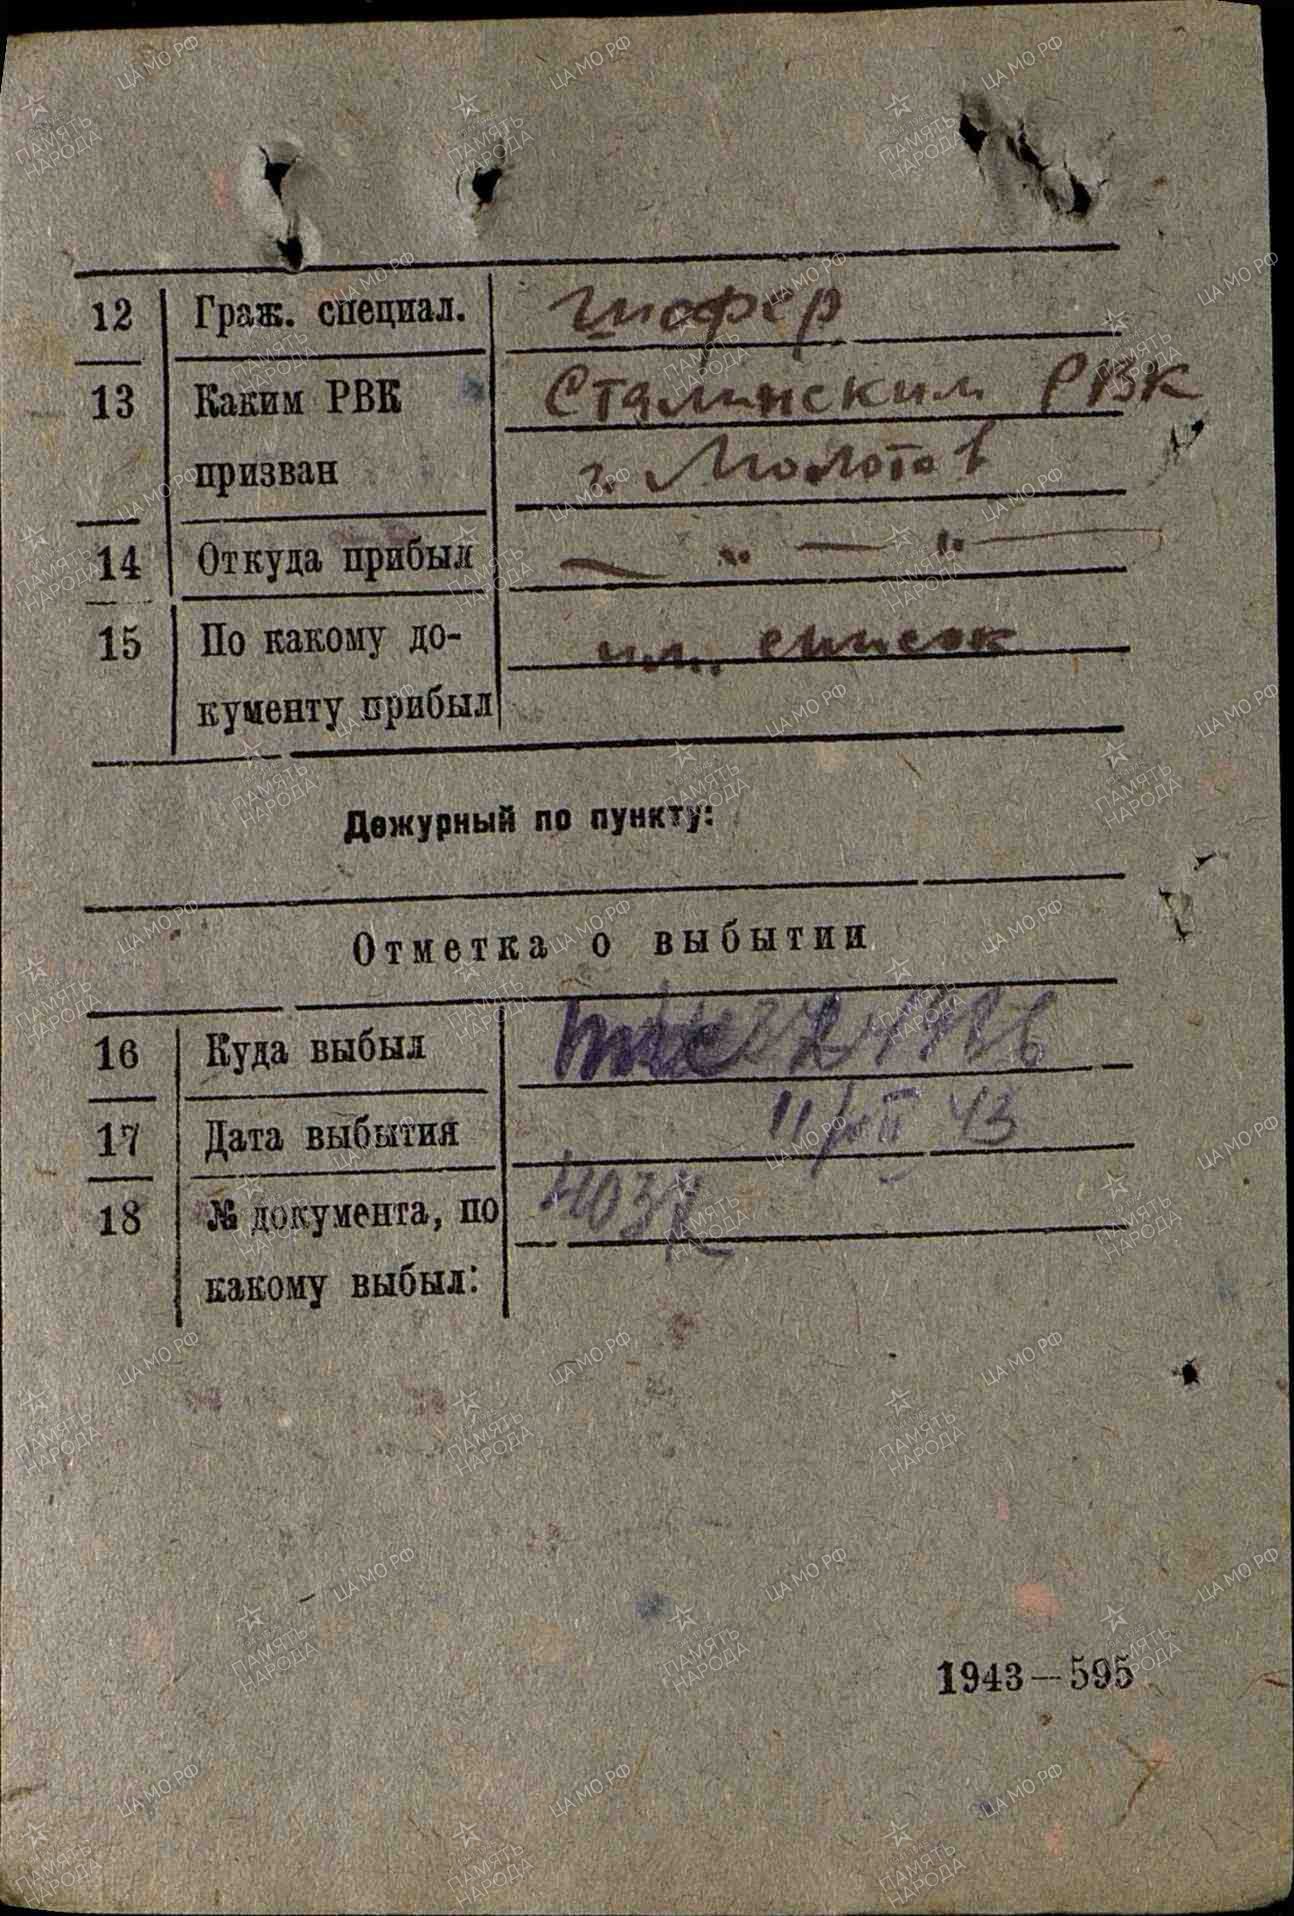 12 Граж. специал. шофер
13 Каким РВК Сталинским РВК
призван г. Молотов
14 Откуда прибыл — „ — „ —
15 По какому до- им. список
кументу прибыл
Дежурный по пункту:
Отметка о выбытии
16 Куда выбыл
17 Дата выбытия 11/II 43
18 № документа, по
какому выбыл:
1943—595
ЦА МО РФ
ПАМЯТЬ
НАРОДА